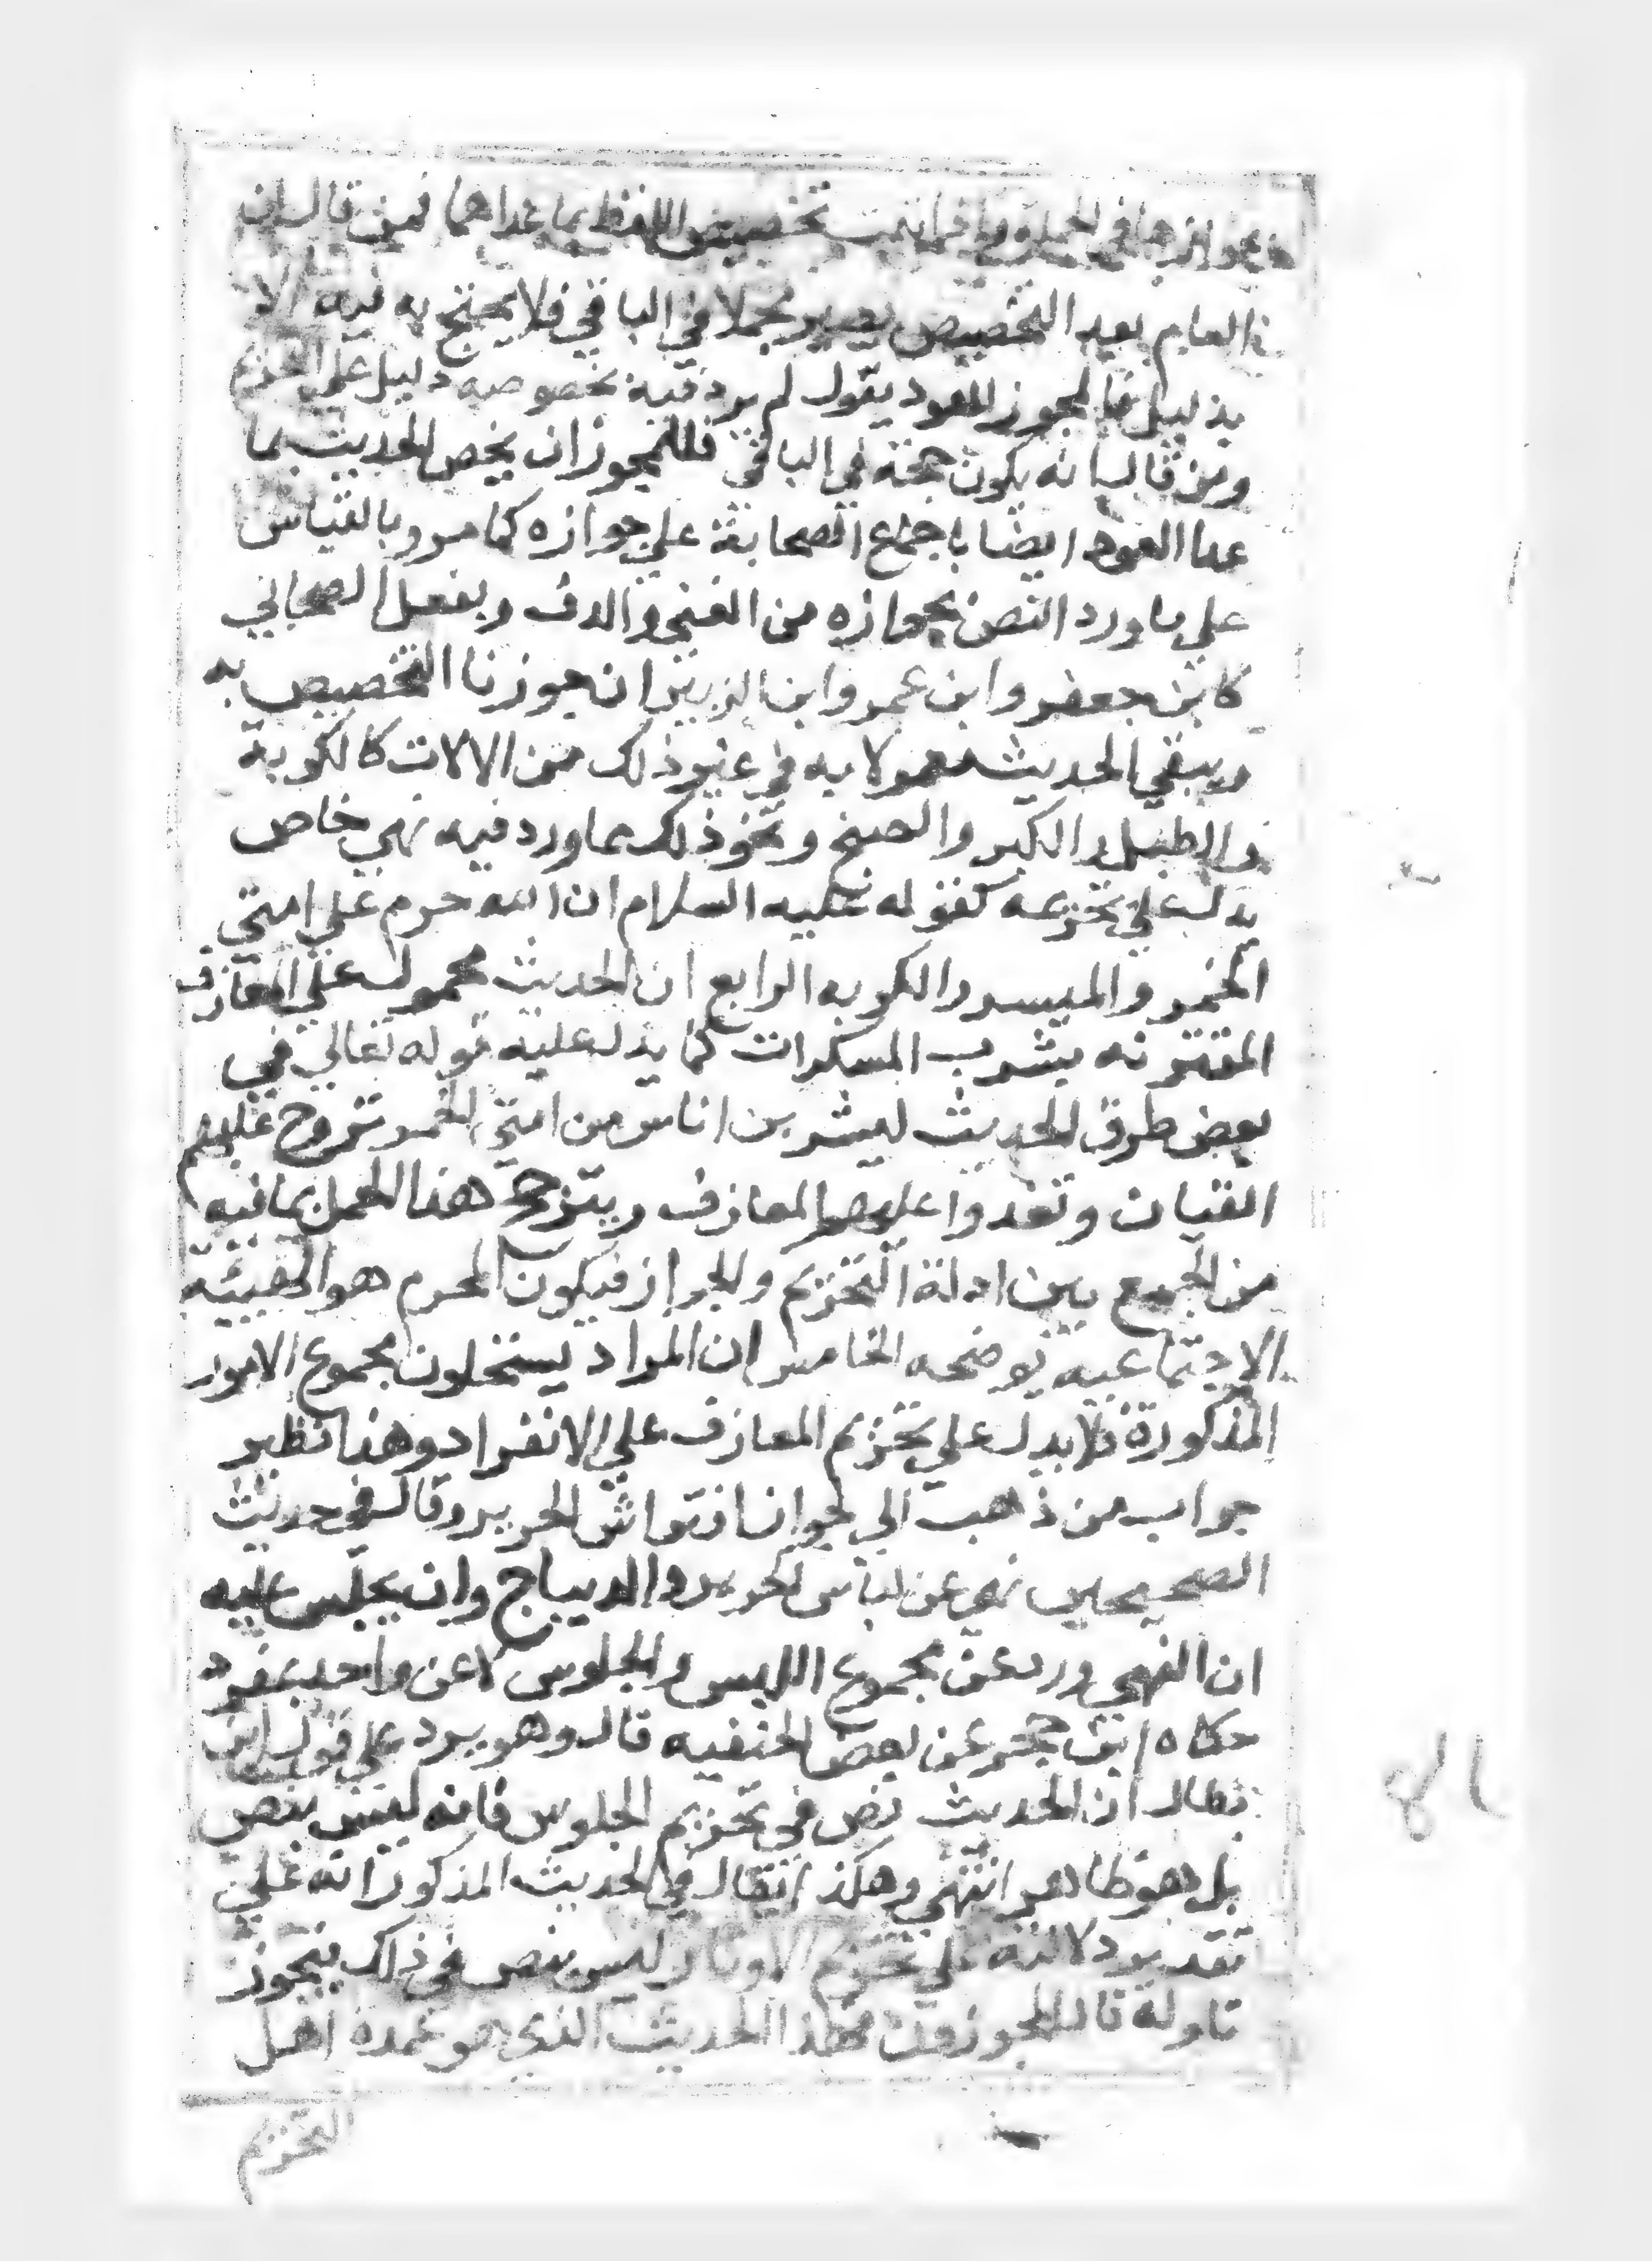 بجوازها في الجملة تخصيص اللفظ بما عداهما فمن قال ان
العام بعد التخصيص يصير مجملا في الباقي فلا يحتج به فيه الا
بدليل فالمجوز للعود يقول لم يرد فيه بخصوصه دليل على التحريم
ومن قال انه يكون حجة في الباقي فللمجوز ان يخص الحديث بما
عدا العود ايضا باجماع الصحابة على جوازه كما مر وبالقياس
علي ما ورد النص بجوازه من الغنى والدف وبفعل الصحابي
كابن جعفر وابن عمر وابن الزبير ان جوزنا التخصيص به
ويبقي الحديث معمولا به في غير ذلك من الالات كالكوبة
والطبل والكبر والصنج ونحو ذلك مما ورد فيه نهي خاص
يدل علي تحريمه كقوله عليه السلام ان الله حرم علي امتي
الخمر والميسر والكوبه الرابع ان الحديث محمول علي المعازف
المقترنه بشرب المسكرات كما يدل عليه قوله تعالي في
بعض طرق الحديث ليشربن اناس من امتي الخمر تروح عليهم
القيان وتغدوا عليهم المعازف ويترجح هذا الحمل بما فيه
من الجمع بين ادلة التحريم والجواز فيكون المحرم هو الهيئة
الاجتماعيه توضحه الخامس ان المراد يستحلون مجموع الامور
المذكورة فلا يدل علي تحريم المعازف علي الانفراد وهذا نظير
جواب من ذهب الي جواز افتراش الحرير وقال في حديث
الصحيحين نهي عن لباس الحرير والديباج وان يجلس عليه
ان النهي ورد عن مجموع اللبس والجلوس لا عن واحد بمفرده
حكاه ابن حجر عن بعض الحنفيه قال وهو يرد علي قول ابن
بطال ان الحديث نص في تحريم الجلوس فانه ليس بنص
بل هو ظاهر انتهي وهكذا يقال في الحديث المذكور انه علي
تقدير دلالته علي تحريم الاوتار ليس بنص في ذلك فيجوز
تاوله قال المجوزون فهذا الحديث الذي هو عمدة اهل
التحريم